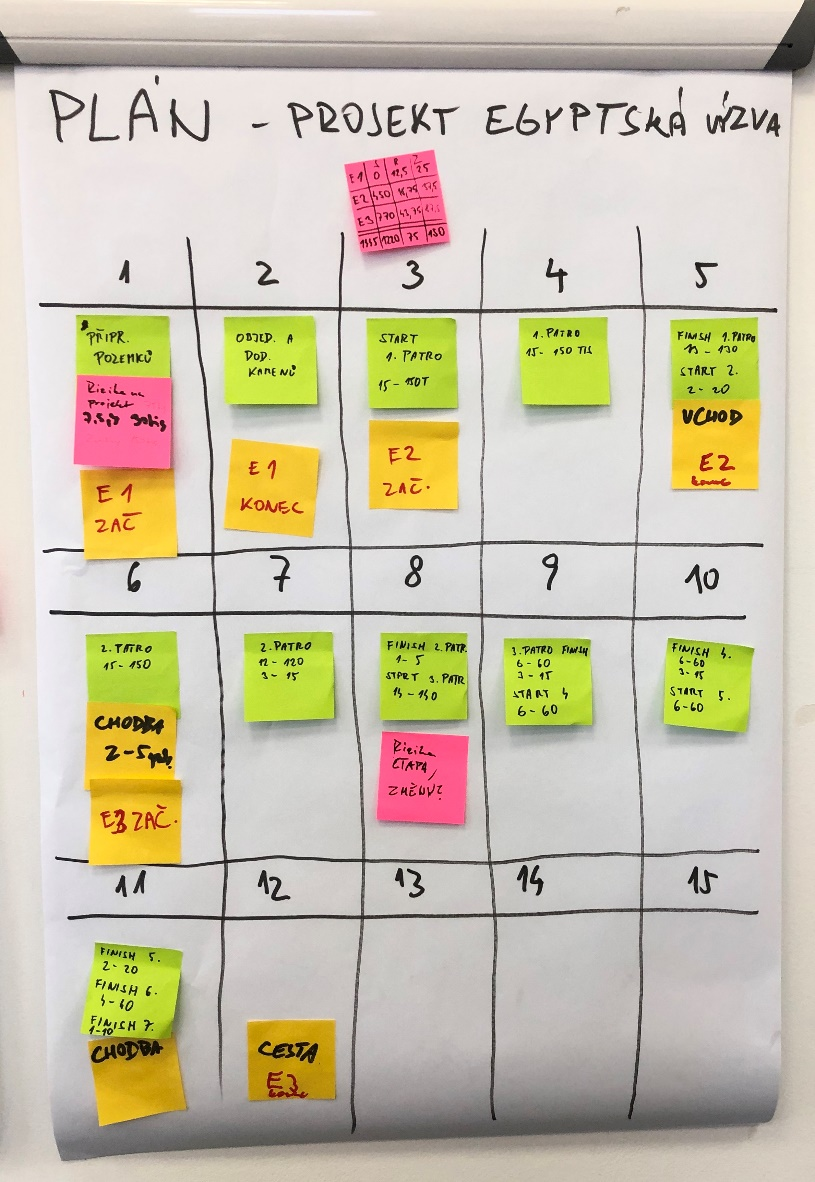 PLÁN - PROJEKT EGYPTSKÁ VÝZVA
E1 0 12,5 25
E2 450 18,75 37,5
E3 770 43,75
1220 75 150
1
2
3
4
5
PŘÍPR.
POZEMKŮ
Rizika na
projekt
E1
ZAČ
OBJED. A
DOD.
KAMENŮ
E1
KONEC
START
1. PATRO
15-150T
E2
ZAČ.
1. PATRO
15-150
FINISH 1. PATRO
13-130
START 2.
2-20
VCHOD
E2
konec
6
7
8
9
10
2. PATRO
15-150
CHODBA
E3 ZAČ.
2. PATRO
12-120
3-15
FINISH 2. PATR.
1-5
START 3. PATR
14-140
Rizika
ETAPA,
ZMĚNY?
3. PATRO FINISH
6-60
3-15
START 4
6-60
FINISH 4.
6-60
3-15
START 5.
6-60
11
12
13
14
15
FINISH 5.
2-20
FINISH 6.
4-40
FINISH 7.
1-10
CHODBA
CESTA
E3
konec